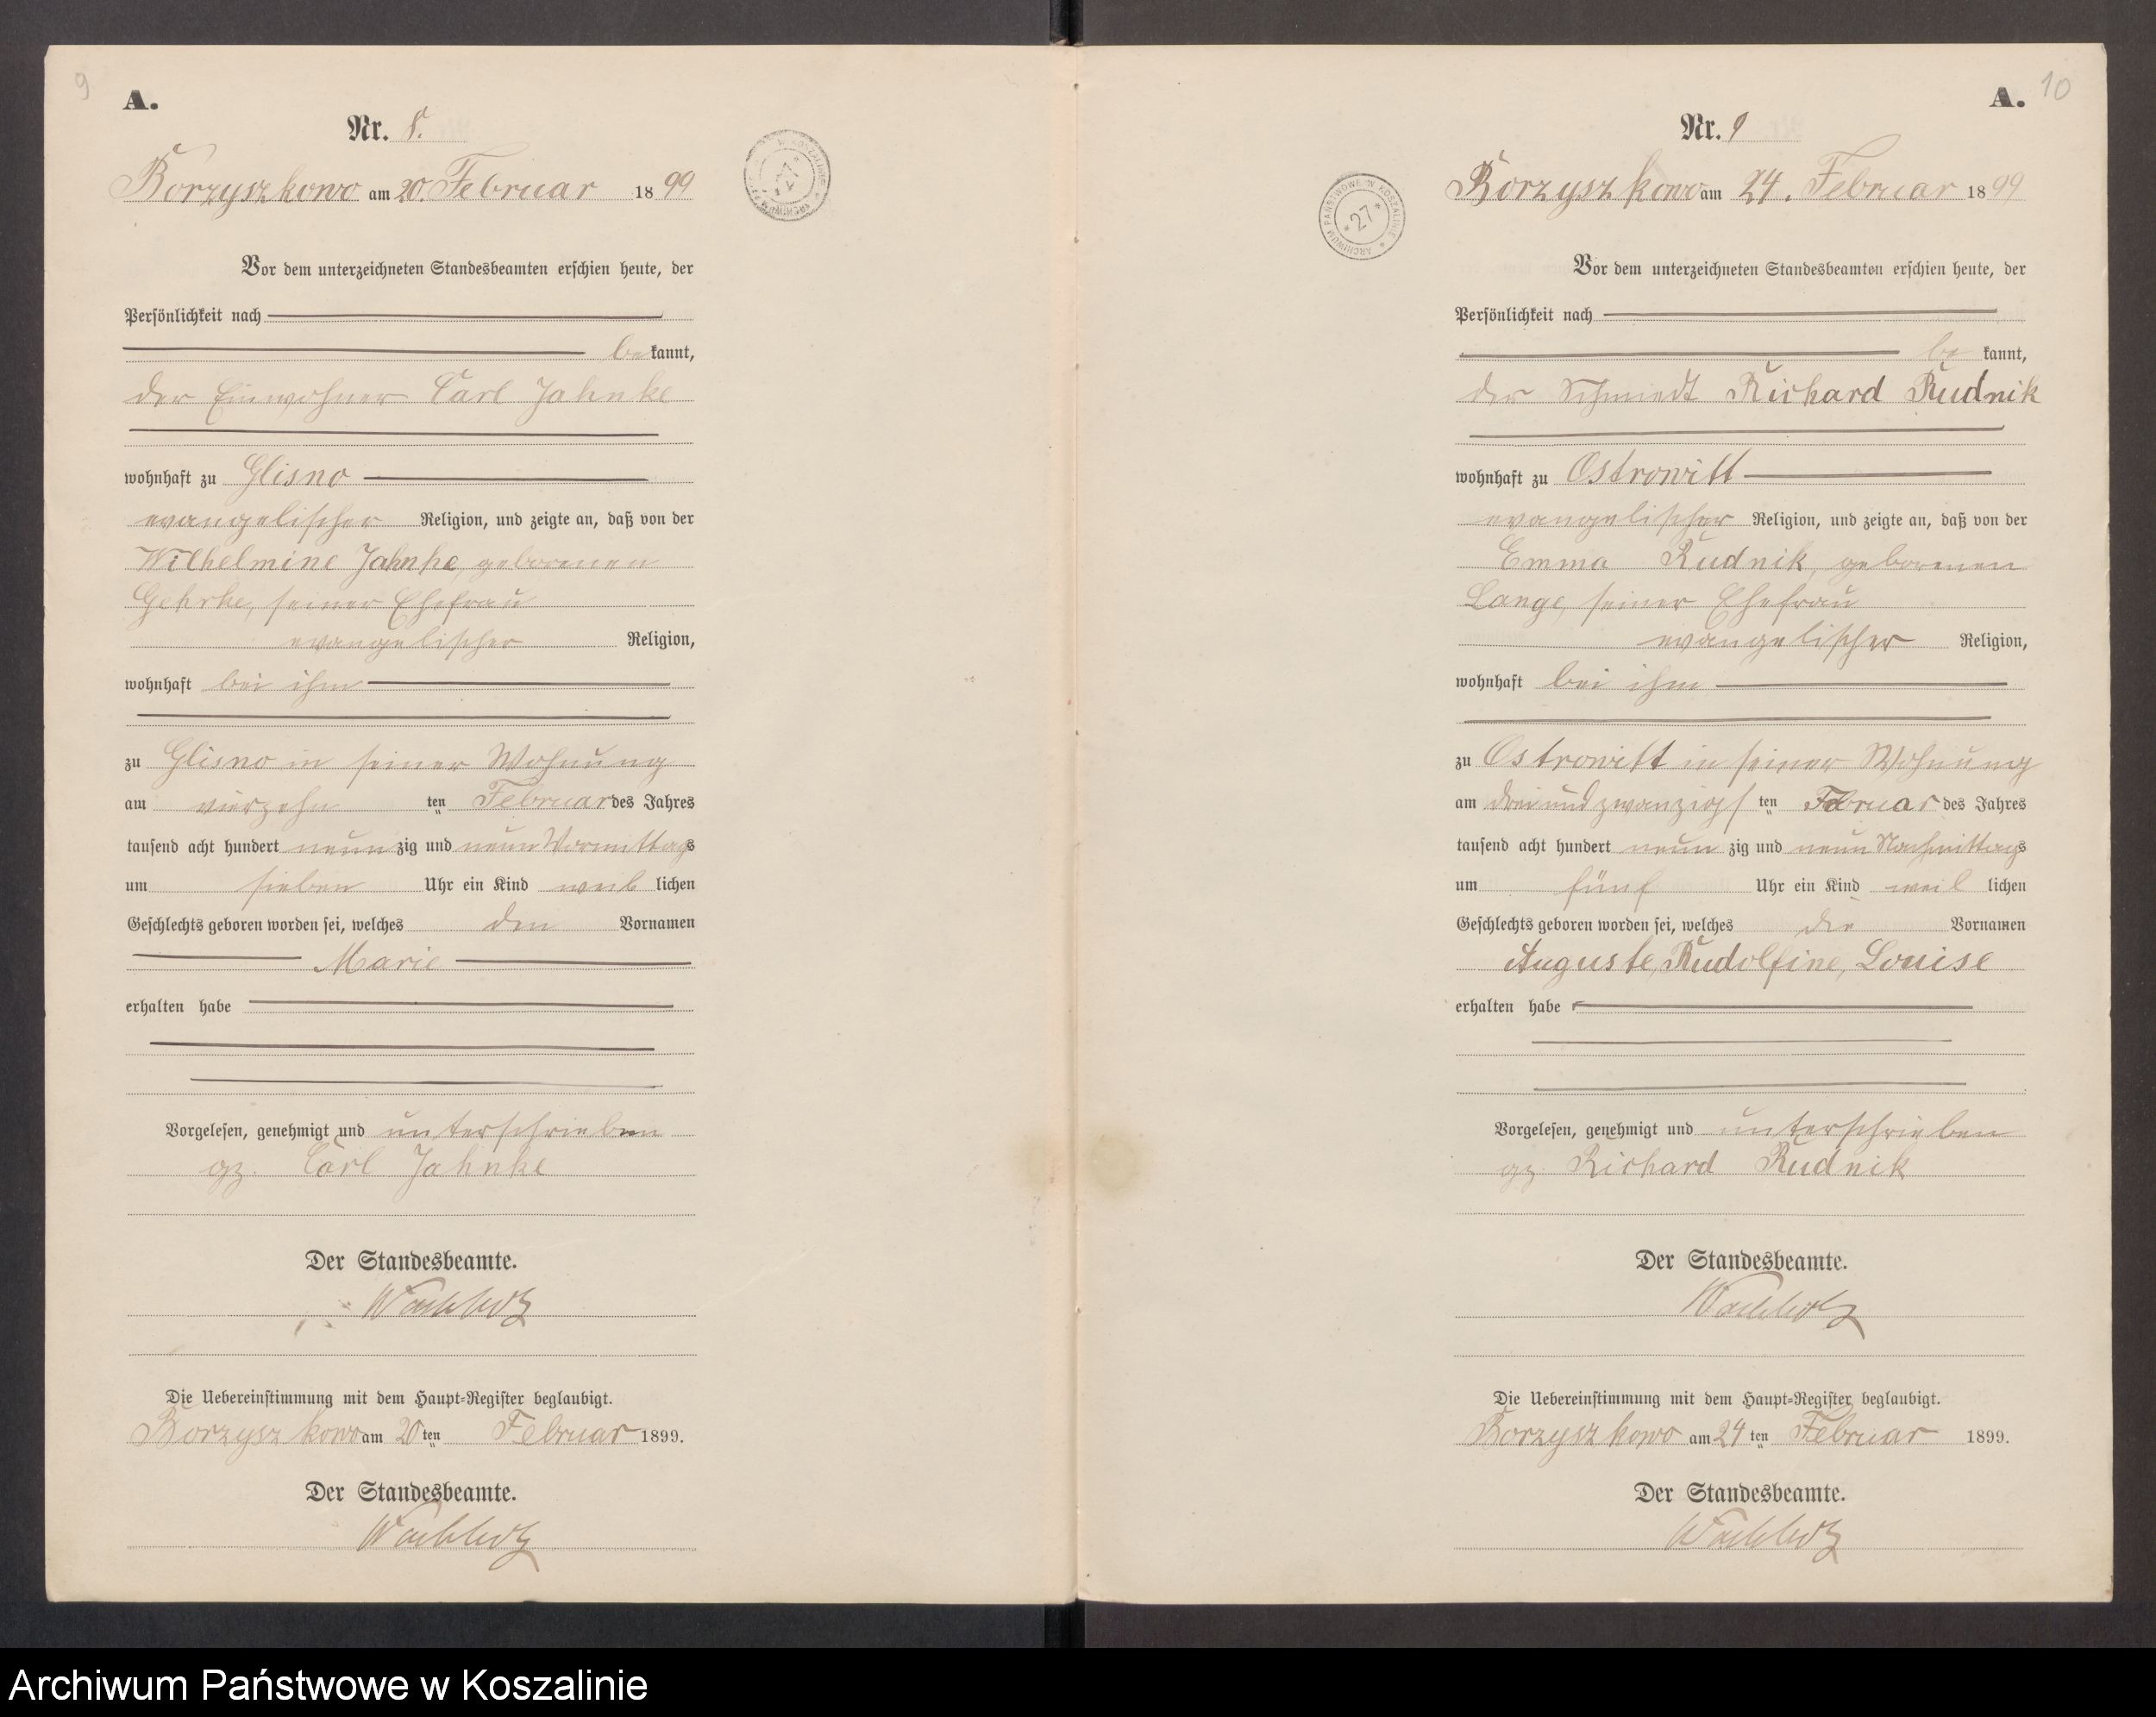 9
A.
Nr. 8.
Borzyszkowo am 20. Februar 1899
Vor dem unterzeichneten Standesbeamten erschien heute, der
Persönlichkeit nach
bekannt,
der Einwohner Carl Jahnke
wohnhaft zu Glisno
evangelischer Religion, und zeigte an, daß von der
Wilhelmine Jahnke, geborenen
Gehrke, seiner Ehefrau
evangelischer Religion,
wohnhaft bei ihm
zu Glisno in seiner Wohnung
am vierzehn ten Februar des Jahres
tausend acht hundert neunzig und neun Vormittags
um sieben Uhr ein Kind weiblichen
Geschlechts geboren worden sei, welches den Vornamen
Marie
erhalten habe
Vorgelesen, genehmigt und unterschrieben
gz. Carl Jahnke
Der Standesbeamte.
Die Uebereinstimmung mit dem Haupt-Register beglaubigt.
Borzyszkowo am 20ten Februar 1899.
Der Standesbeamte.
A. 10
Nr. 9
Borzyszkowo am 24. Februar 1899
ARCHIWUM PAŃSTWOWE W KOSZALINIE * 27 *
Vor dem unterzeichneten Standesbeamten erschien heute, der
Persönlichkeit nach
bekannt,
der Schmiedt Richard Rudnik
wohnhaft zu Ostrowitt
evangelischer Religion, und zeigte an, daß von der
Emma Rudnik, geborenen
Lange, seiner Ehefrau
evangelischer Religion,
wohnhaft bei ihm
zu Ostrowitt in seiner Wohnung
am dreiundzwanzigsten Februar des Jahres
tausend acht hundert neunzig und neun Nachmittags
um fünf Uhr ein Kind weiblichen
Geschlechts geboren worden sei, welches die Vornamen
Auguste, Rudolfine, Louise
erhalten habe
Vorgelesen, genehmigt und unterschrieben
gz Richard Rudnik
Der Standesbeamte.
Die Uebereinstimmung mit dem Haupt-Register beglaubigt.
Borzyszkowo am 24ten Februar 1899.
Der Standesbeamte.
Archiwum Państwowe w Koszalinie